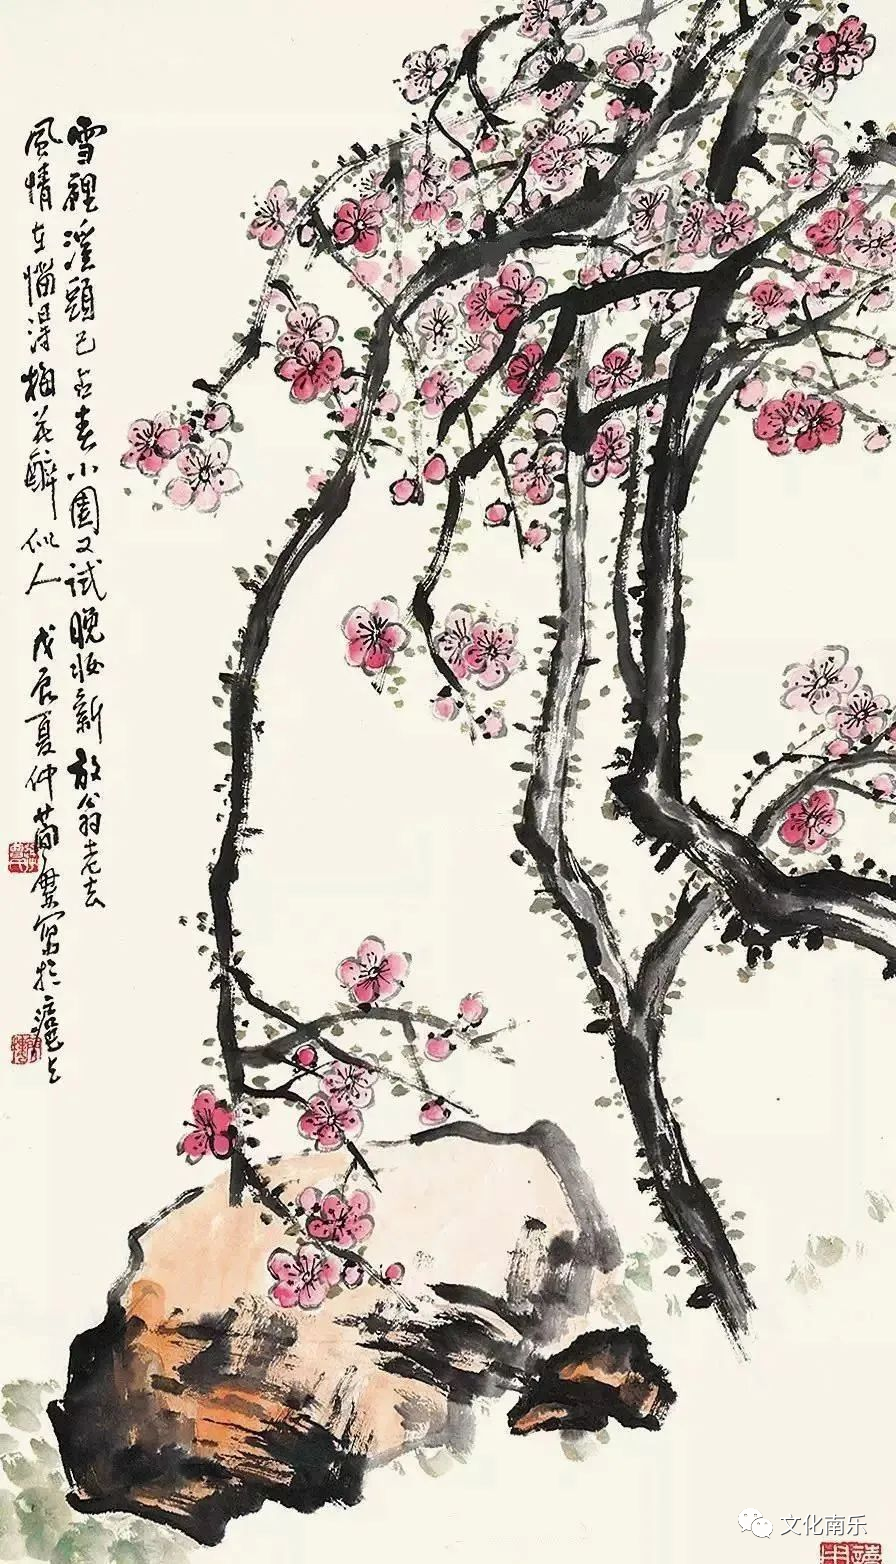 雪裡溪頭已占春小園又試晚妝新放翁老去
風情在惱得梅花醉似人戊辰夏仲蕳廔寫於滬上
文化南乐